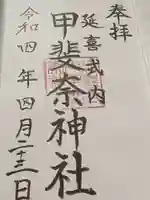 奉拝
延喜式内
甲斐奈神社
令和四年四月二十三日